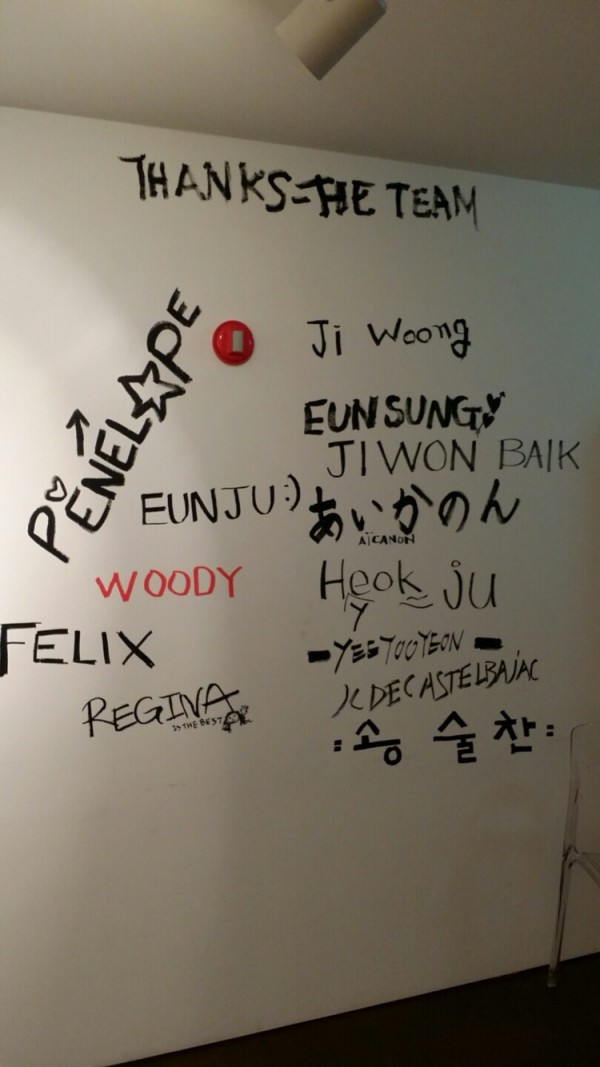 THANKS-THE TEAM
PENELOPE
Ji Woong
EUNSUNG
JIWON BAIK
EUNJU:)
あいかのん
AÏCANON
WOODY
Heok ju
Y
FELIX
YEEYOOYEON
JCDECASTELBAJAC
REGINA
IS THE BEST
:송 술 찬: